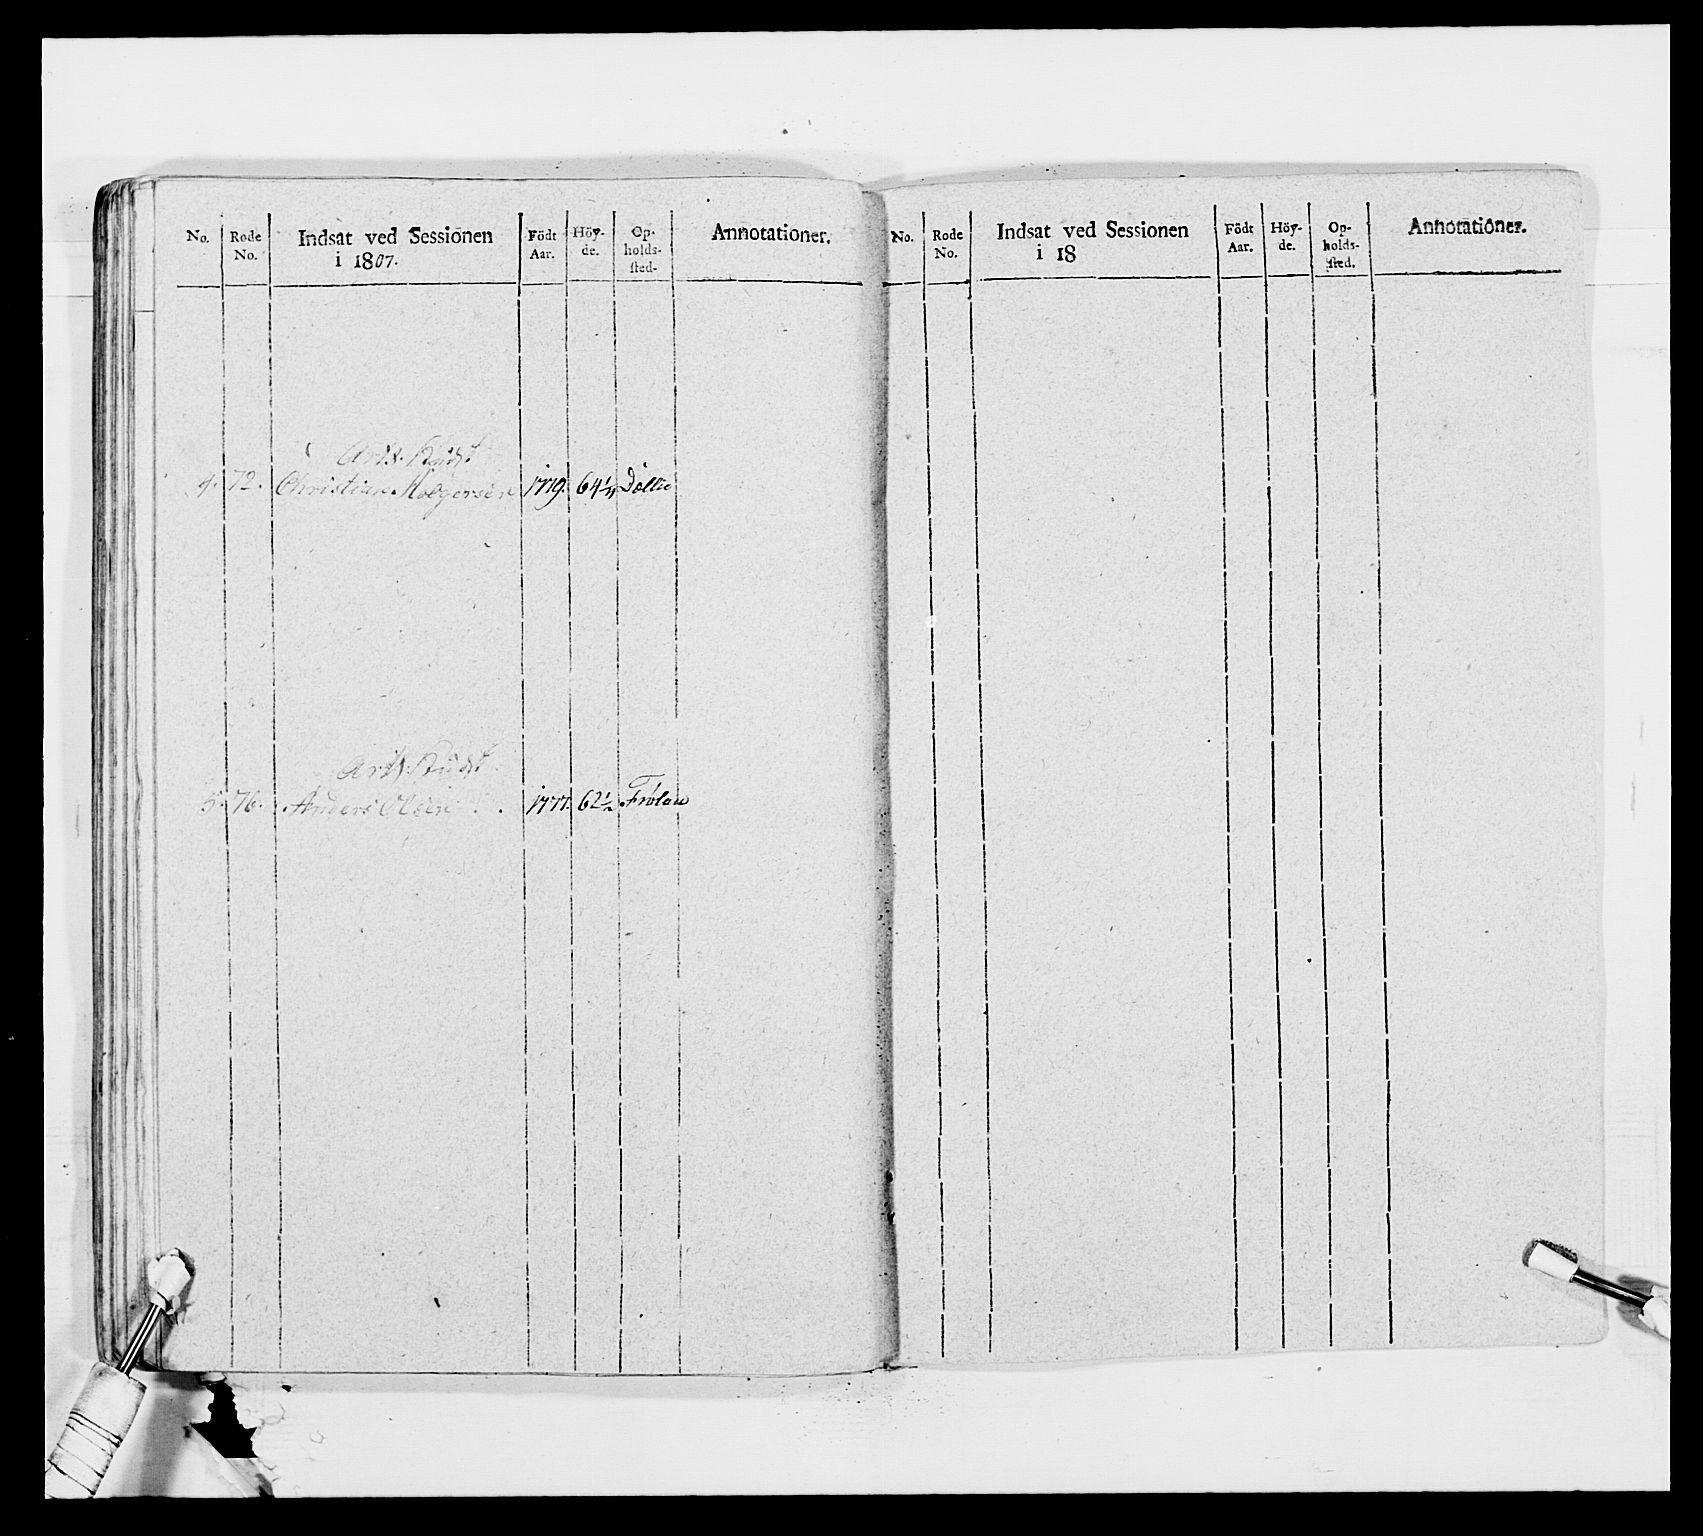 No. Rode No. Indsat ved Sessionen i 1807. Födt Aar. Höy-de. Op-holds-sted. Annotationer.
Art: Kudsk
4. 72. Christian Holgersen 1779. 64 1/4 Dollie
Art: Kudsk
5. 76. Anders Olsen 1777. 62 1/2 Frølan
No. Rode No. Indsat ved Sessionen i 18 Födt Aar. Höy-de. Op-holds-sted. Annotationer.